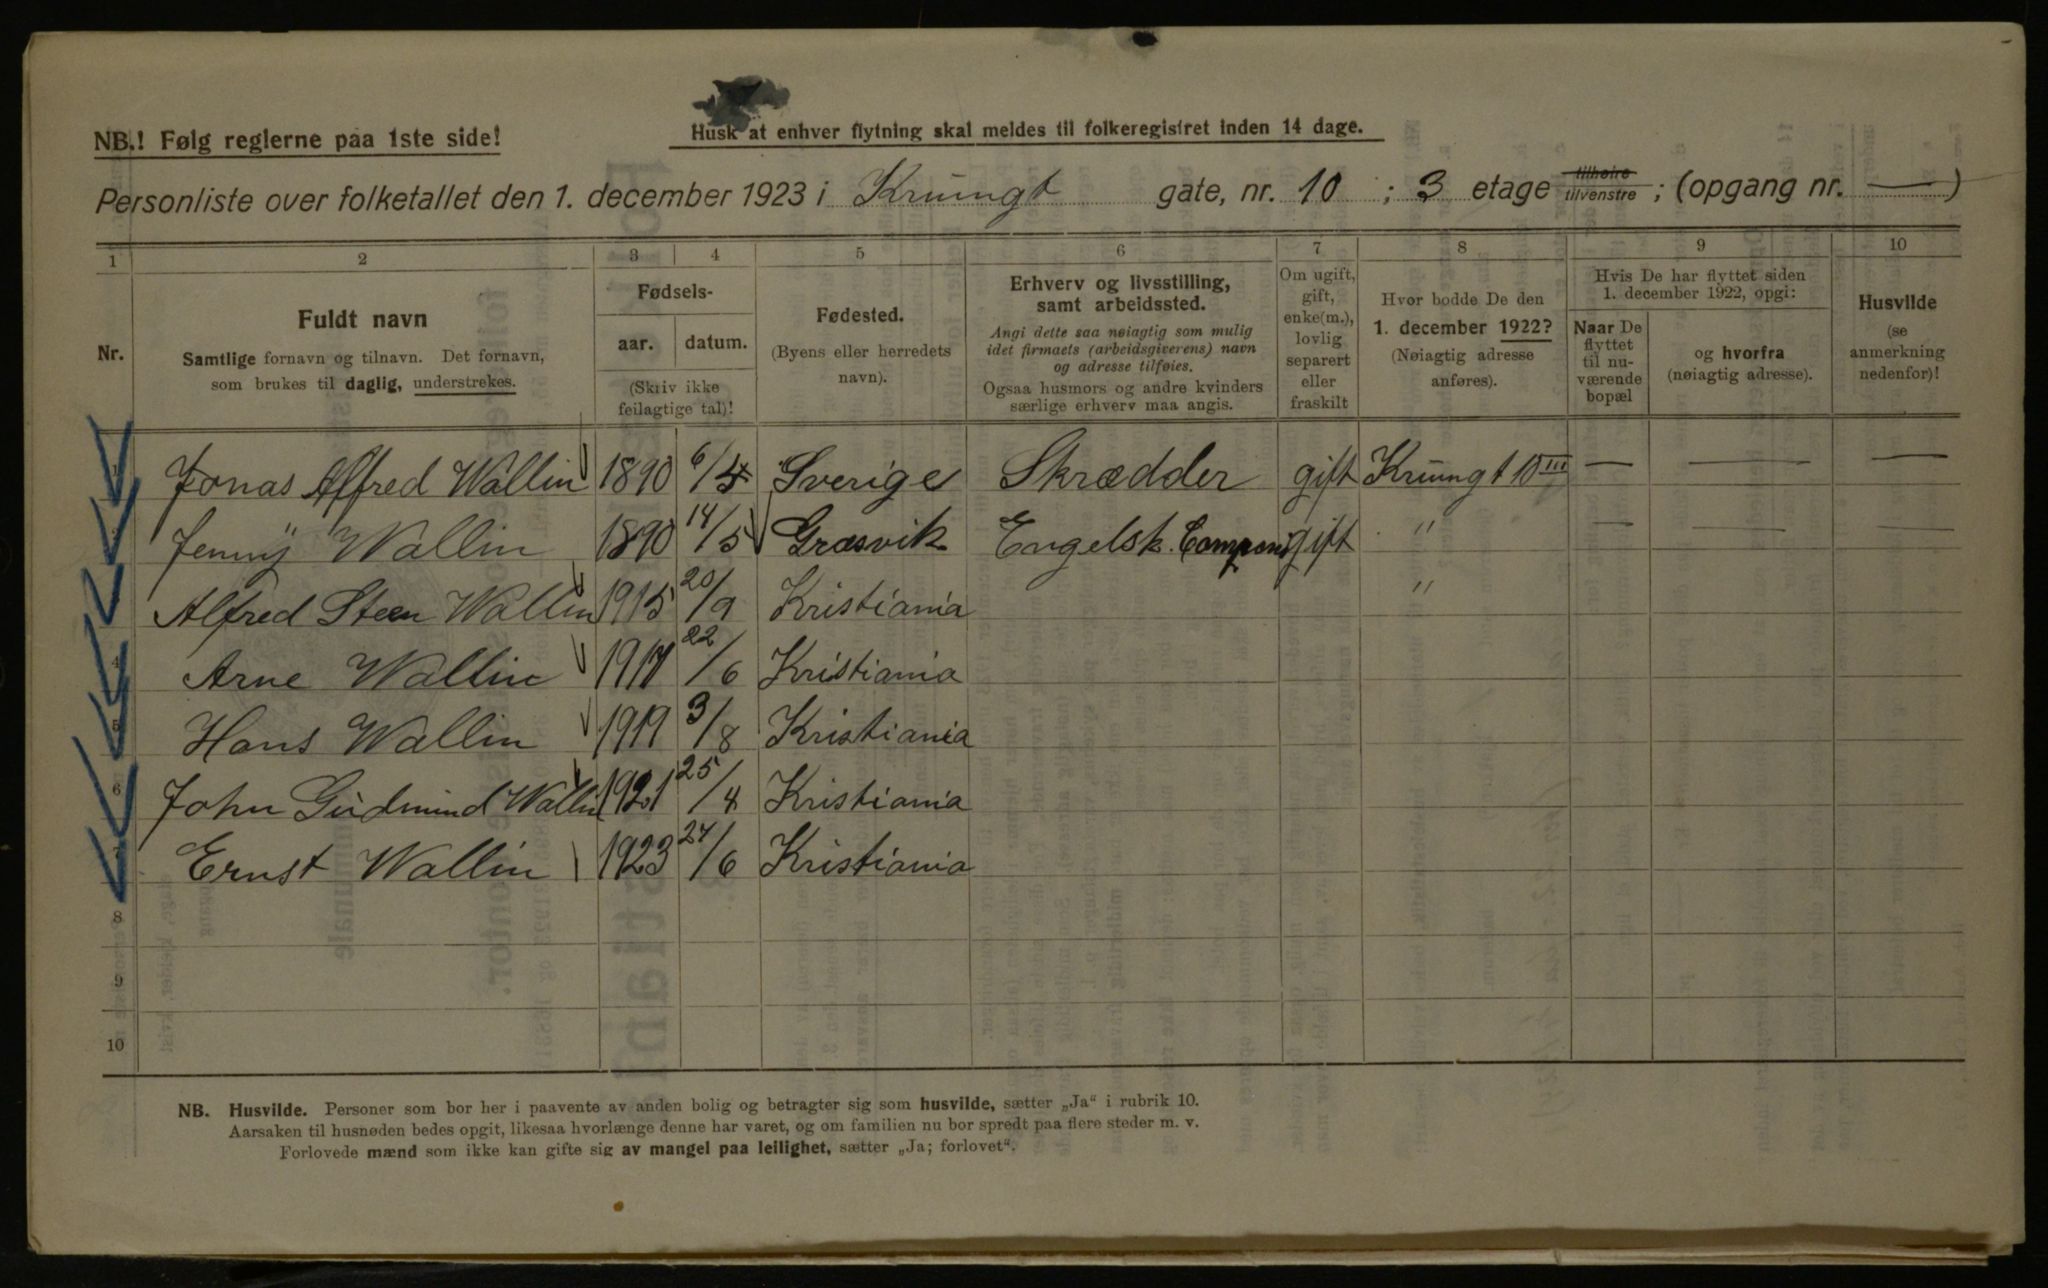 NB.! Følg reglerne paa 1ste side!
Husk at enhver flytning skal meldes til folkeregistret inden 14 dage.
Personliste over folketallet den 1. december 1923 i Kruugt gate, nr. 10 ; 3 etage tilhøire tilvenstre ; (opgang nr. — )
1 2 3 4 5 6 7 8 9 10
Nr.
Fuldt navn
Samtlige fornavn og tilnavn. Det fornavn,
som brukes til daglig, understrekes.
Fødsels-
aar. datum.
(Skriv ikke
feilagtige tal)!
Fødested.
(Byens eller herredets
navn).
Erhverv og livsstilling,
samt arbeidssted.
Angi dette saa nøiagtig som mulig
idet firmaets (arbeidsgiverens) navn
og adresse tilføies.
Ogsaa husmors og andre kvinders
særlige erhverv maa angis.
Om ugift,
gift,
enke(m.),
lovlig
separert
eller
fraskilt
Hvor bodde De den
1. december 1922?
(Nøiagtig adresse
anføres).
Hvis De har flyttet siden
1. december 1922, opgi:
Naar De
flyttet
til nu-
værende
bopæl
og hvorfra
(nøiagtig adresse).
Husvilde
(se
anmerkning
nedenfor)!
1 Jonas Alfred Wallin 1890 6/4 Sverige Skrædder gift Kruugt 10 III — — —
2 Jenny Wallin 1890 14/5 Græsvik Engelsk. gift " — — —
Alfred Steen Wallin 1915 20/9 Kristiania "
4 Arne Wallin 1917 22/6 Kristiania
5 Hans Wallin 1919 3/8 Kristiania
6 John Gudmund Wallin 1921 25/4 Kristiania
7 Ernst Wallin 1923 24/6 Kristiania
8
9
10
NB. Husvilde. Personer som bor her i paavente av anden bolig og betragter sig som husvilde, sætter „Ja“ i rubrik 10.
Aarsaken til husnøden bedes opgit, likesaa hvorlænge denne har varet, og om familien nu bor spredt paa flere steder m. v.
Forlovede mænd som ikke kan gifte sig av mangel paa leilighet, sætter „Ja; forlovet“.